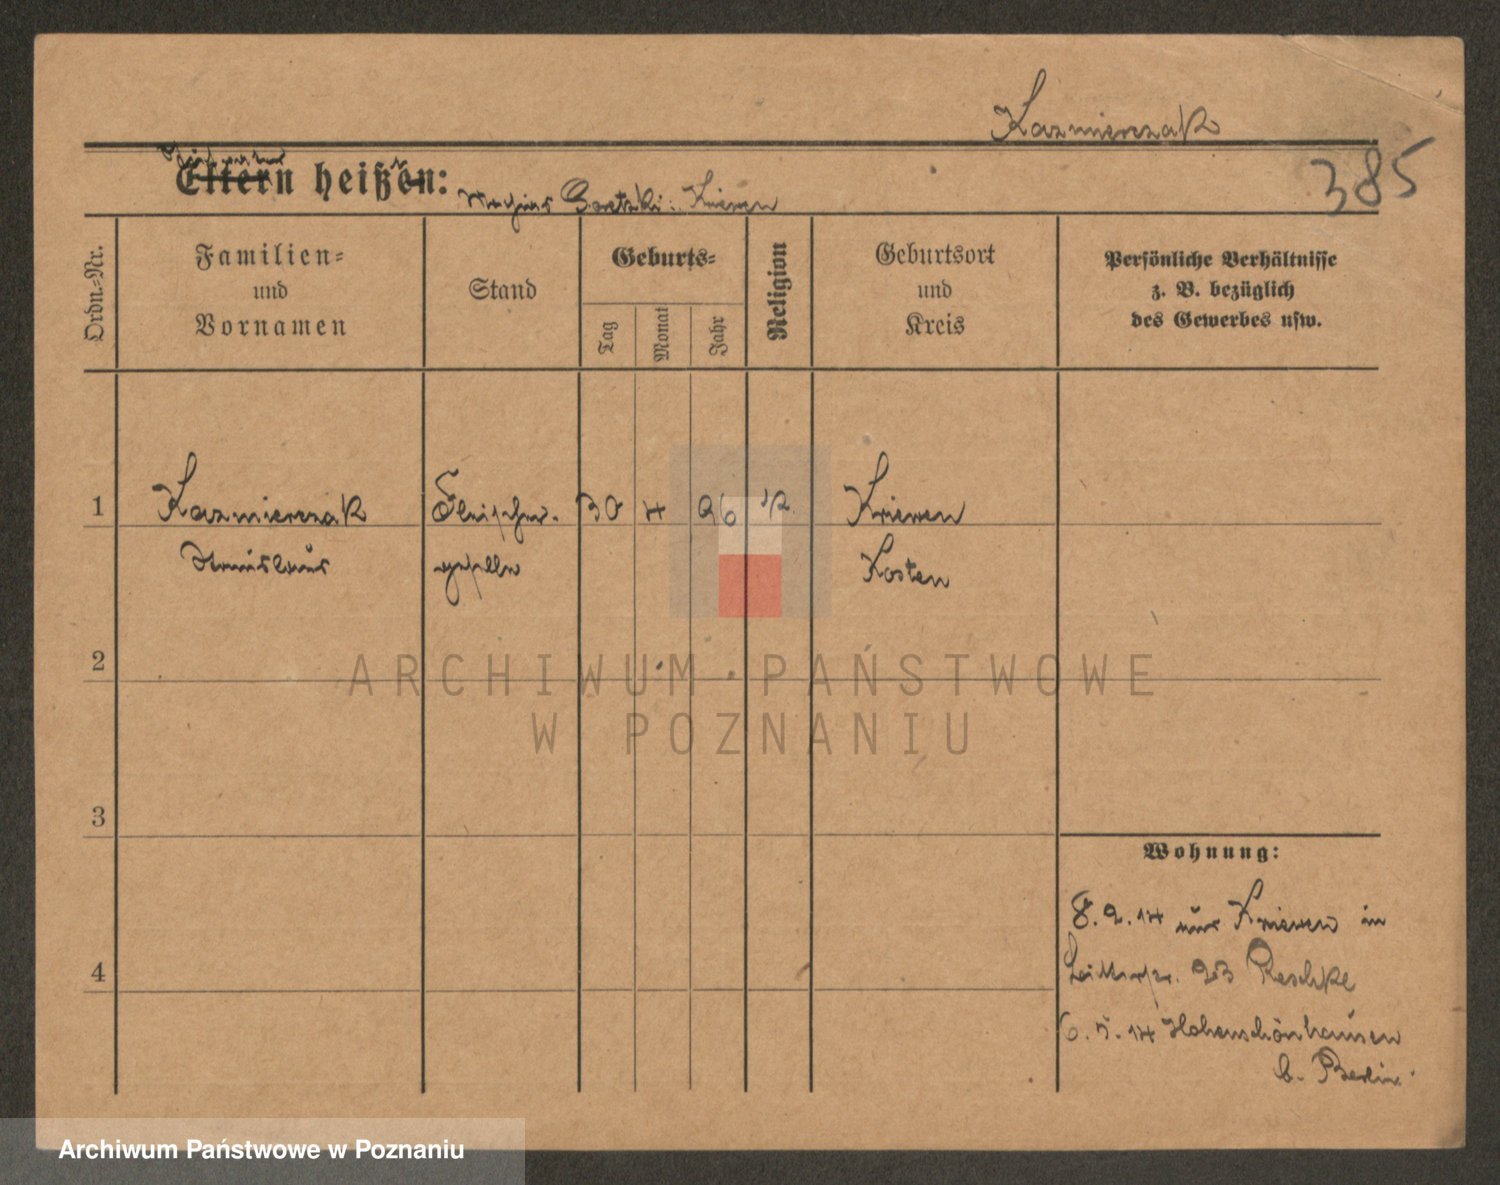 Kazmierczak
385
Eltern heißen:
Boretzki: Kriewen
Ordn.-Nr.
Familien=
und
Vornamen
Stand
Geburts=
Tag
Monat
Jahr
Religion
Geburtsort
und
Kreis
Persönliche Verhältnisse
z. B. bezüglich
des Gewerbes usw.
1
Kazmierczak
Stanislaus
Fleischer-
geselle
30
4
96
K.
Kriewen
Kosten
2
3
4
ARCHIWUM PAŃSTWOWE
W POZNANIU
Wohnung:
8. 2. 14 aus Kriewen in
23 Reschke
6. 5. 14 Hohenschönhausen
b. Berlin.
Archiwum Państwowe w Poznaniu